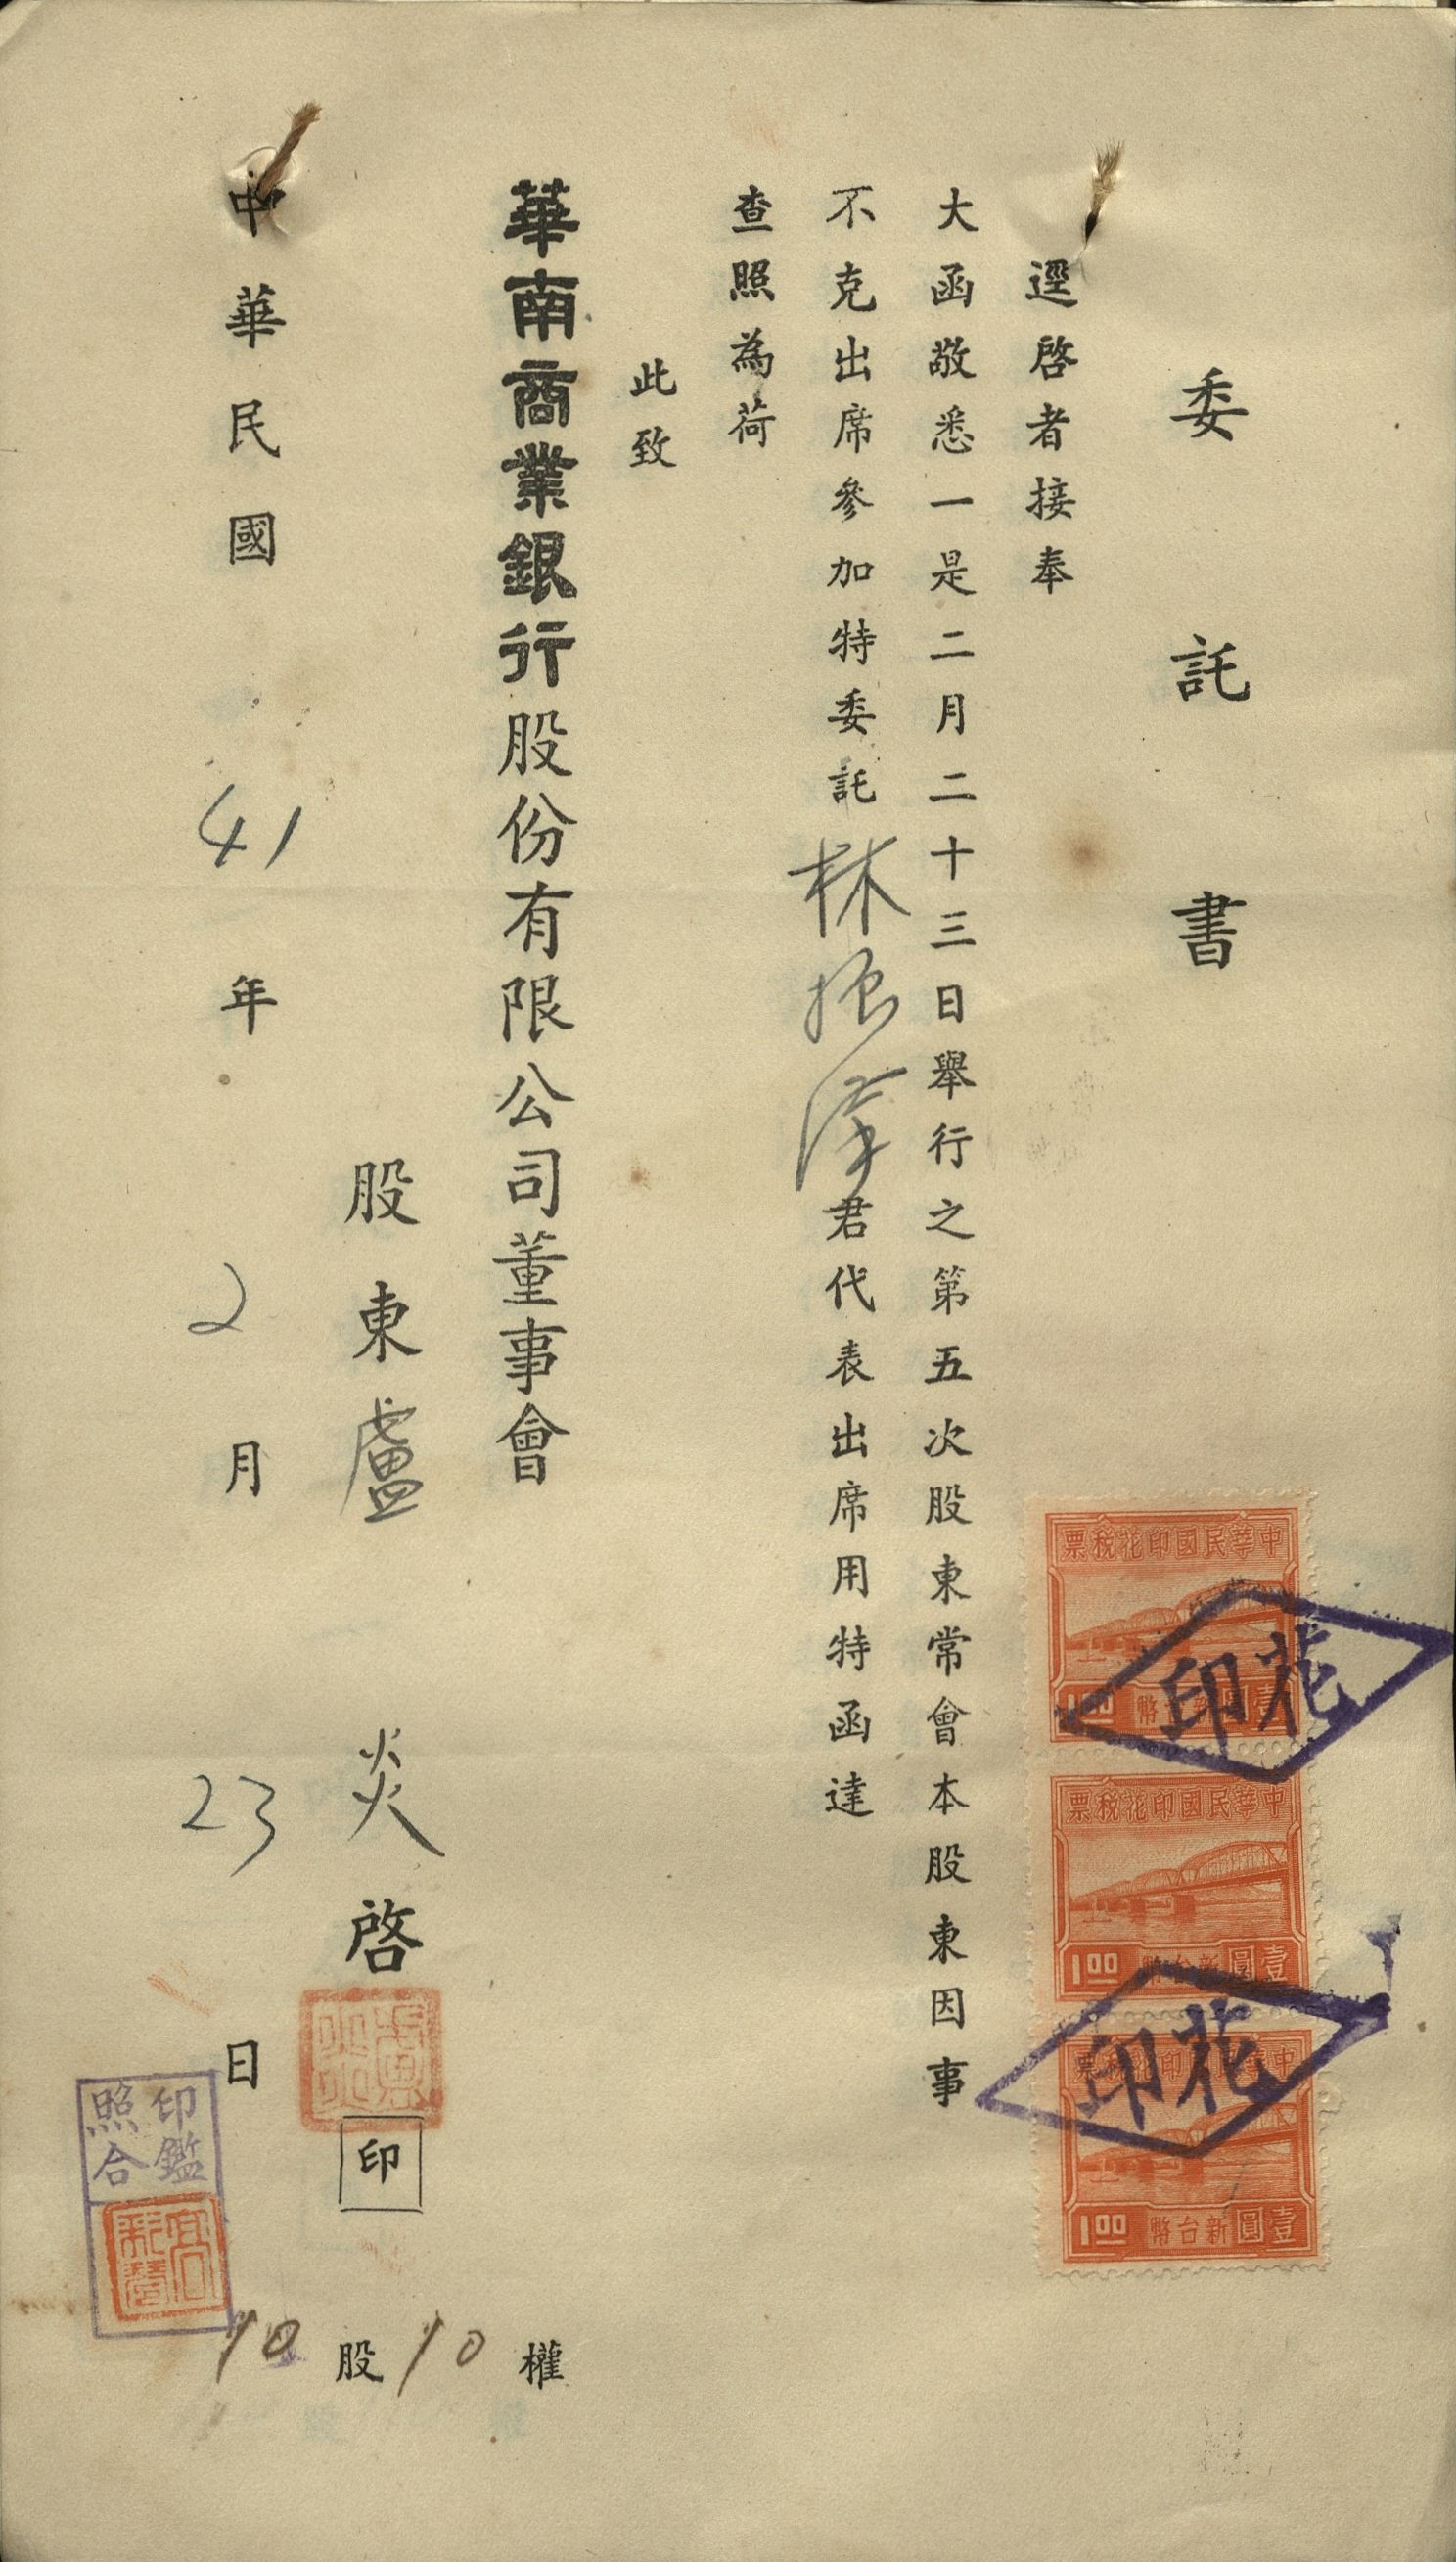 委託書
逕啓者接奉
大函敬悉一是二月二十三日舉行之第五次股東常會本股東因事
不克出席參加特委託林振漢君代表出席用特函達
查照為荷
此致
華南商業銀行股份有限公司董事會
股東盧炎啓印
中華民國41年2月23日
10股10權
中華民國印花稅票
壹圓新台幣
1.00
花印
中華民國印花稅票
壹圓新台幣
1.00
中華民國印花稅票
壹圓新台幣
1.00
花印
盧炎
印鑑
照合